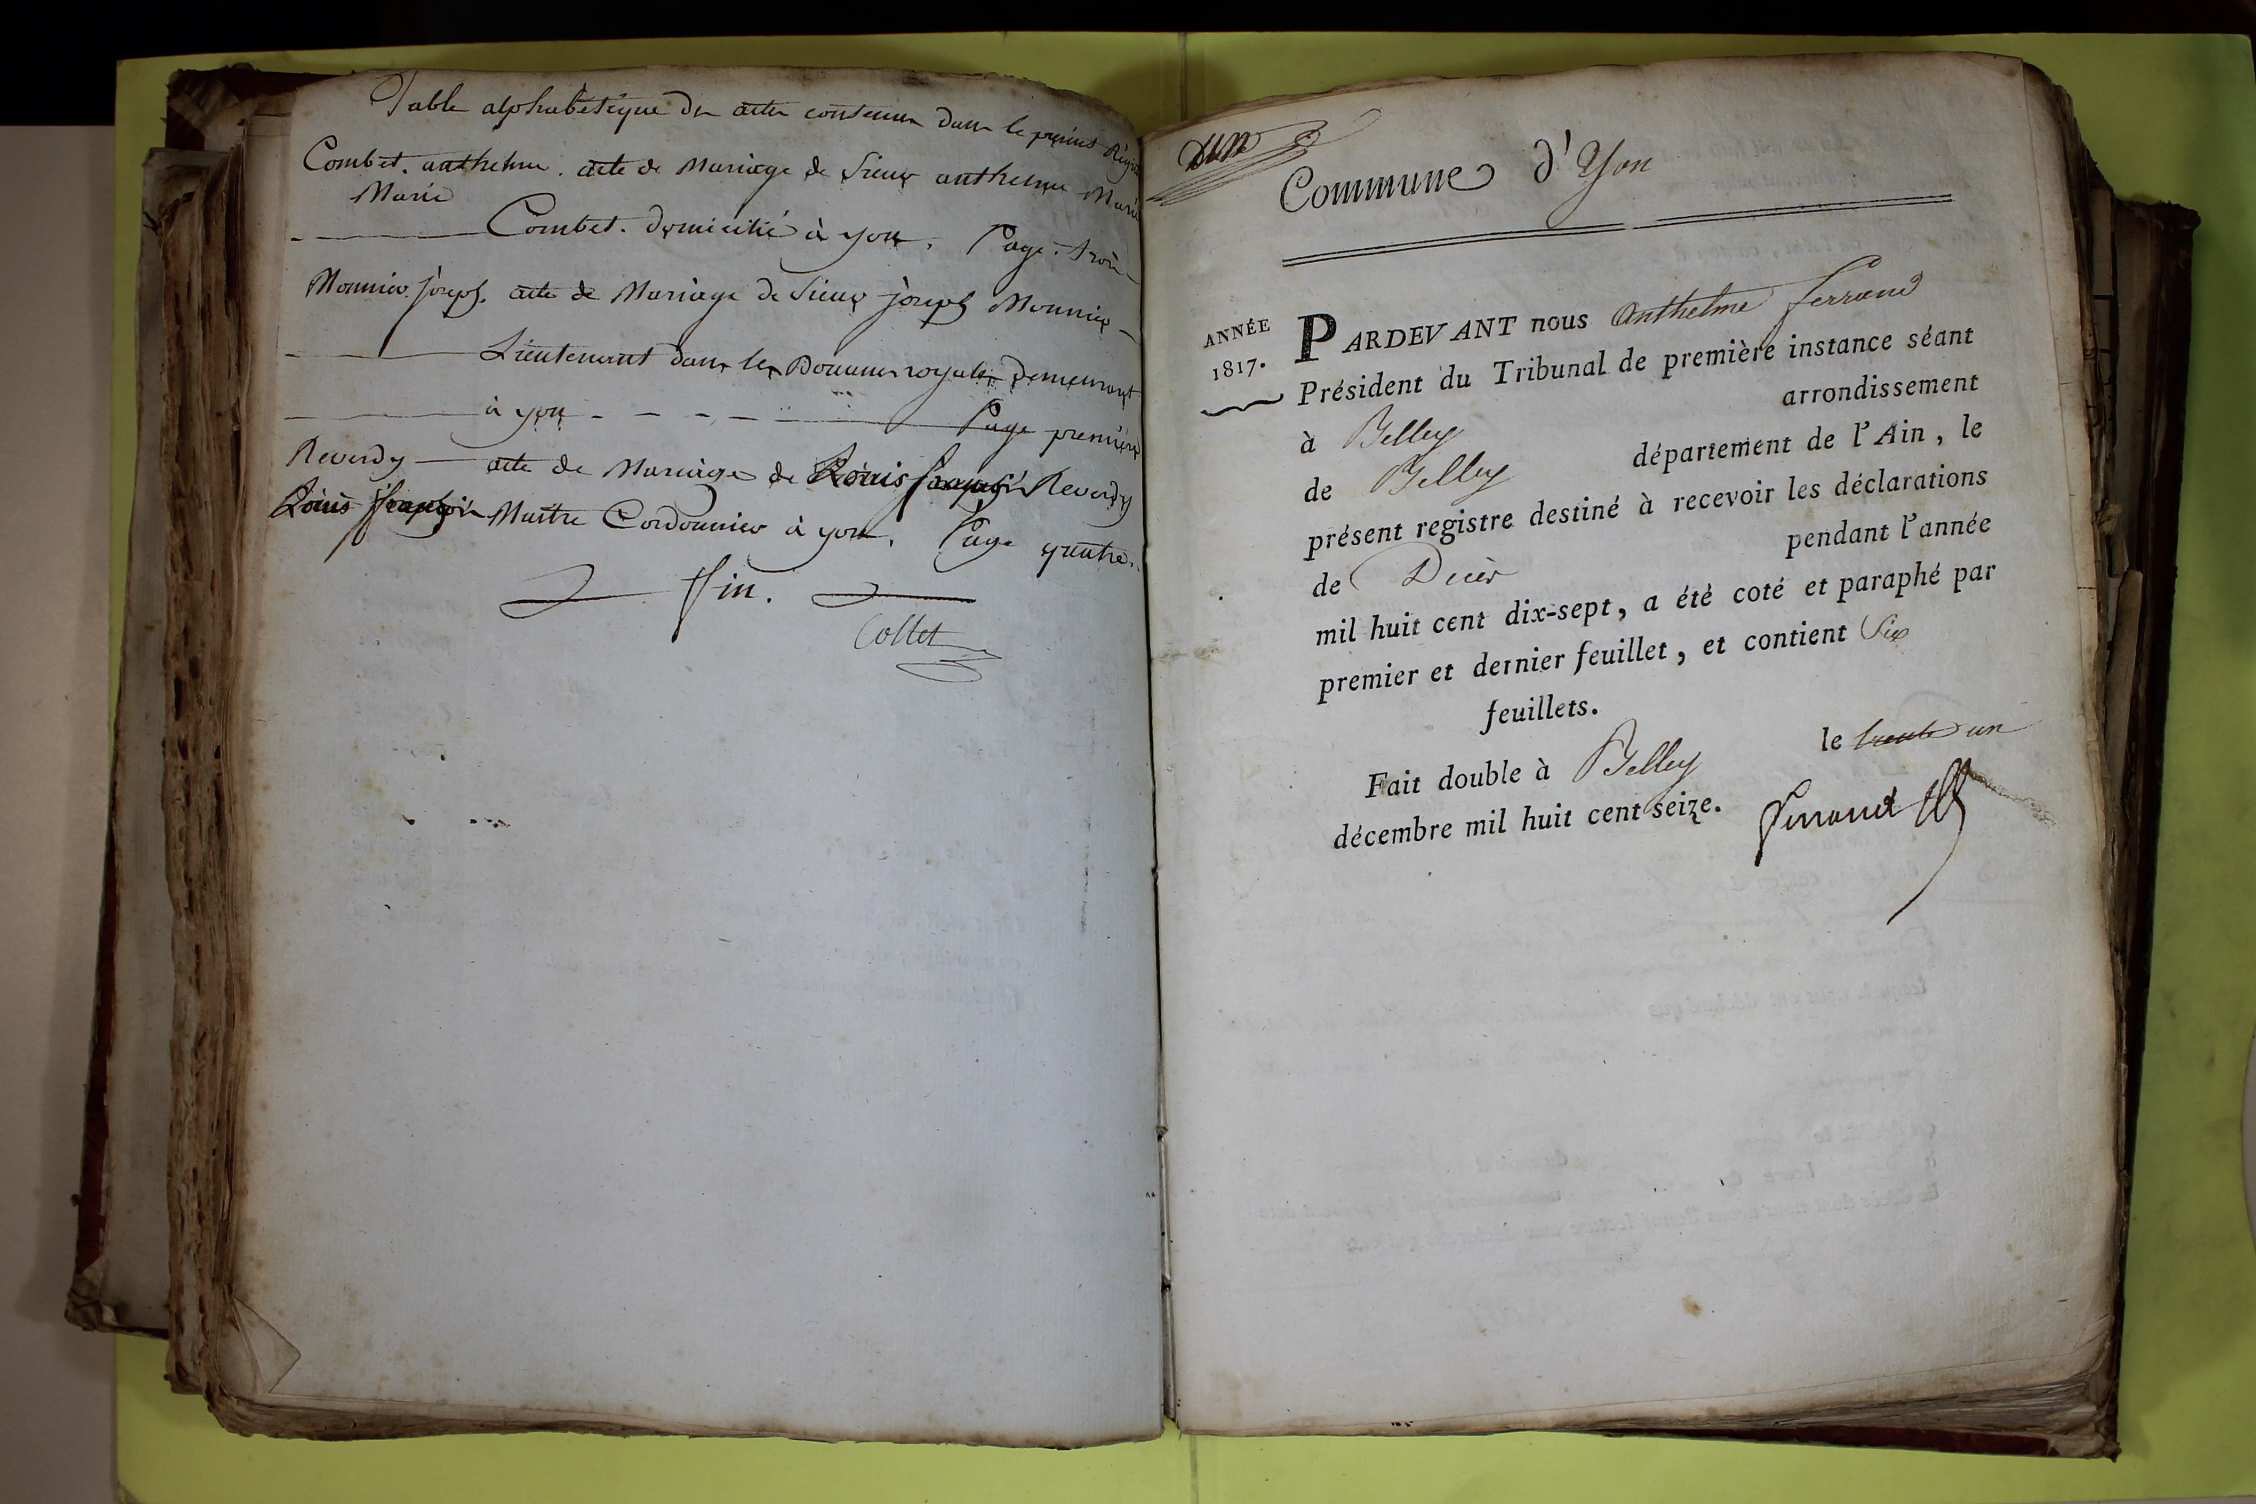 Table alphabétique des actes contenus dans le présent Régistre
Combet. anthelme. acte de Mariage de Sieur anthelme Marie
Marie
Combet. domicilié à yon. Page. trois
Monnier joseph. acte de Mariage de Sieur joseph Monnier
Lieutenant dans les Douanes royales demeurant
à yon - - - - Page première
Reverdy acte de Mariage de Louis françois Reverdy
Louis françois Maitre Cordonnier à yon. Page quatre.
fin.
Collet
Commune d'Yon
ANNÉE
1817.
PARDEVANT nous Anthelme ferrand
Président du Tribunal de première instance séant
à Belley arrondissement
de Belley département de l'Ain, le
présent registre destiné à recevoir les déclarations
de Décès pendant l'année
mil huit cent dix-sept, a été coté et paraphé par
premier et dernier feuillet, et contient Six
feuillets.
Fait double à Belley le trente un
décembre mil huit cent seize.
ferrand